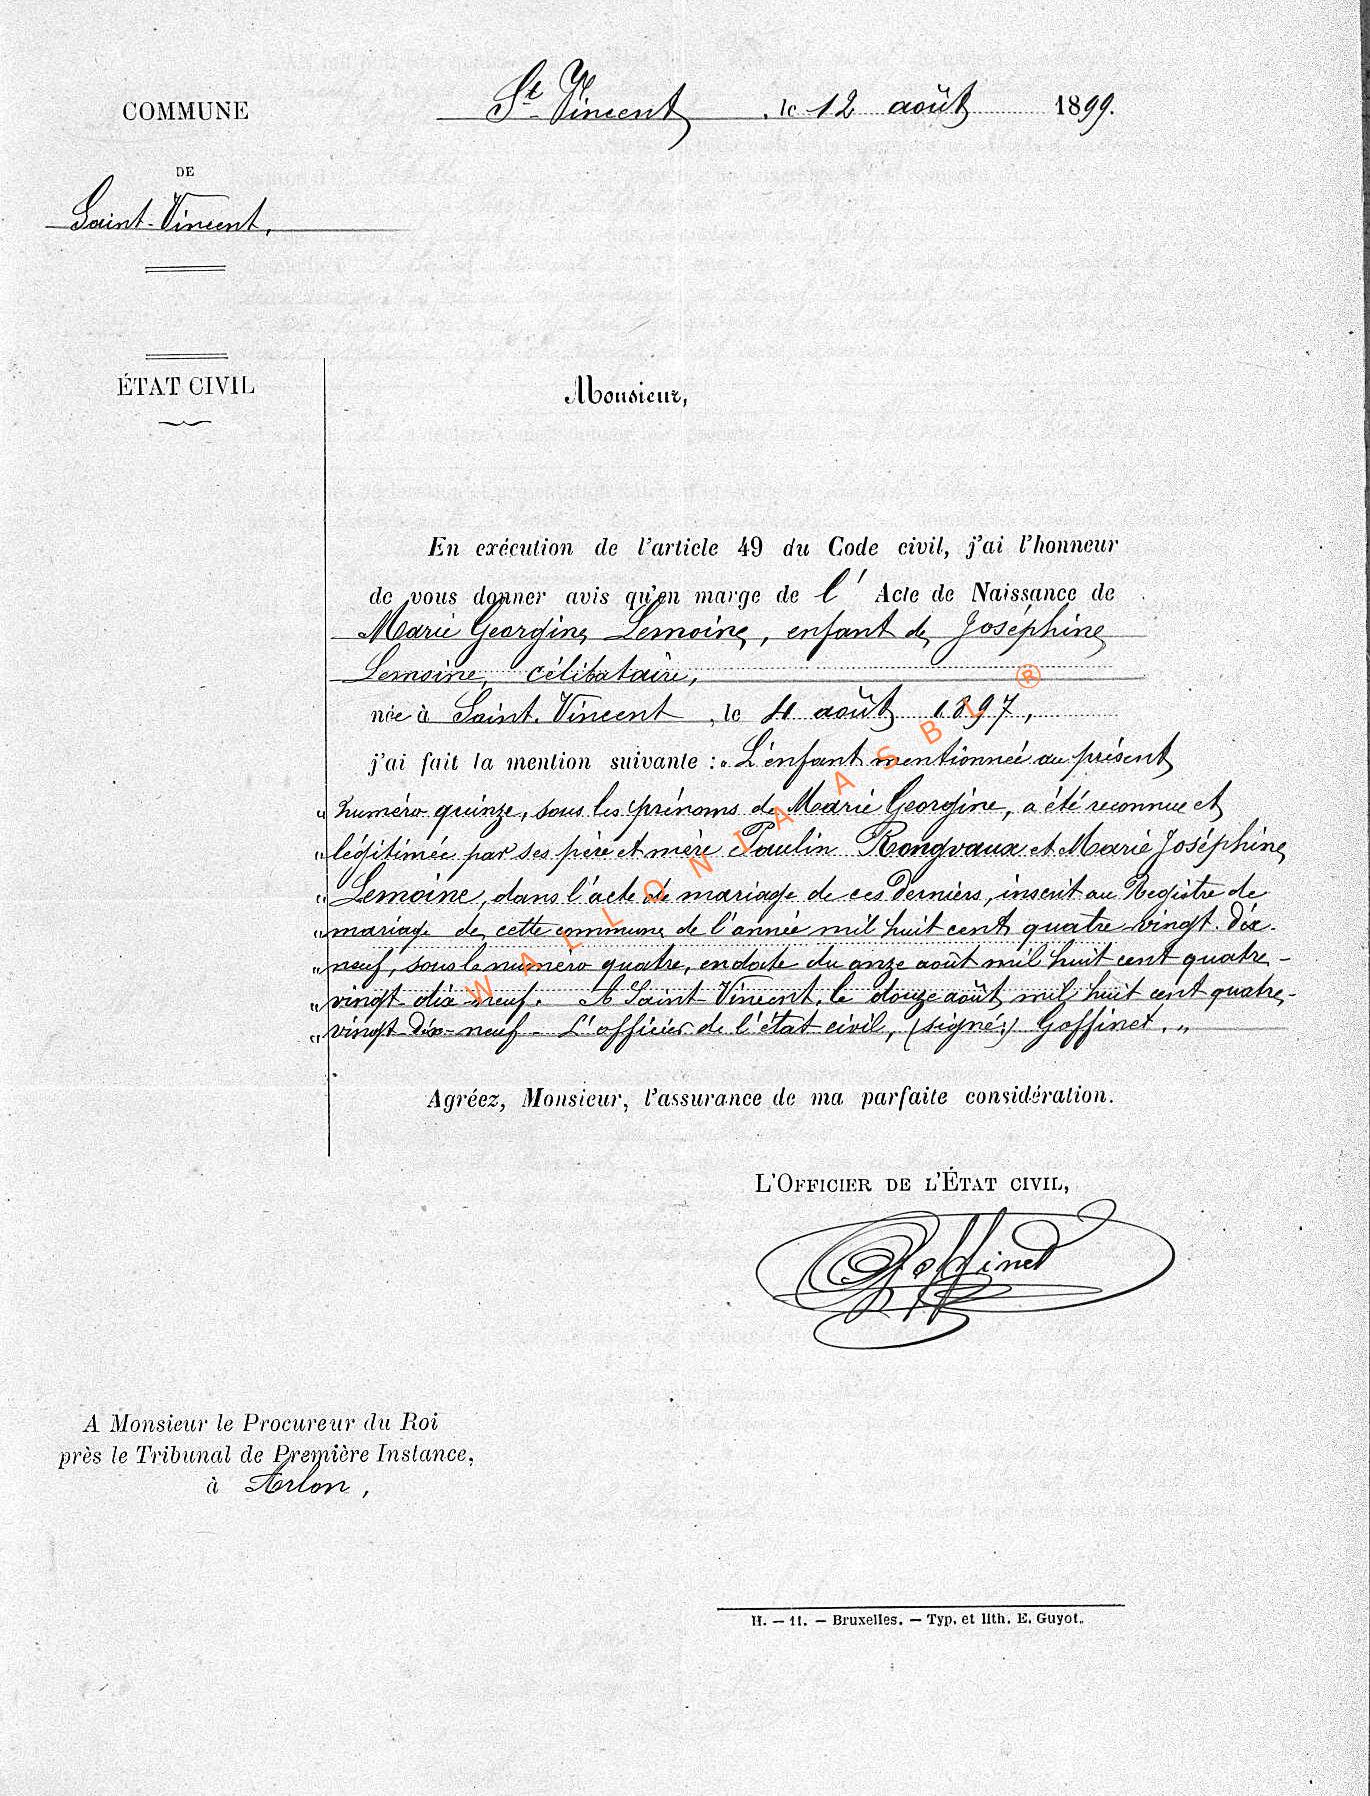 COMMUNE
DE
Saint-Vincent,
St Vincent, le 12 août 1899.
ÉTAT CIVIL
Monsieur,
En exécution de l'article 49 du Code civil, j'ai l'honneur
de vous donner avis qu'en marge de l' Acte de Naissance de
Marie Georgine Lemoine, enfant de Joséphine
Lemoine, célibataire,
née à Saint-Vincent, le 4 août 1897,
j'ai fait la mention suivante : „ L'enfant mentionnée au présent
„ numéro quinze, sous les prénoms de Marie Georgine, a été reconnue et
„ légitimée par ses père et mère Paulin Rongvaux et Marie Joséphine
„ Lemoine, dans l'acte de mariage de ces derniers, inscrit au Registre de
„ mariage de cette commune de l'année mil huit cent quatre-vingt-dix-
„ neuf, sous le numéro quatre, en date du onze août mil huit cent quatre-
„ vingt-dix-neuf. A Saint-Vincent, le douze août mil huit cent quatre-
„ vingt dix-neuf - L'officier de l'état civil, (signé:) Goffinet. „
Agréez, Monsieur, l'assurance de ma parfaite considération.
L'OFFICIER DE L'ÉTAT CIVIL,
Goffinet
A Monsieur le Procureur du Roi
près le Tribunal de Première Instance,
à Arlon,
H. — 11. — Bruxelles. — Typ. et lith. E. Guyot.
WALLONIA ASBL ®